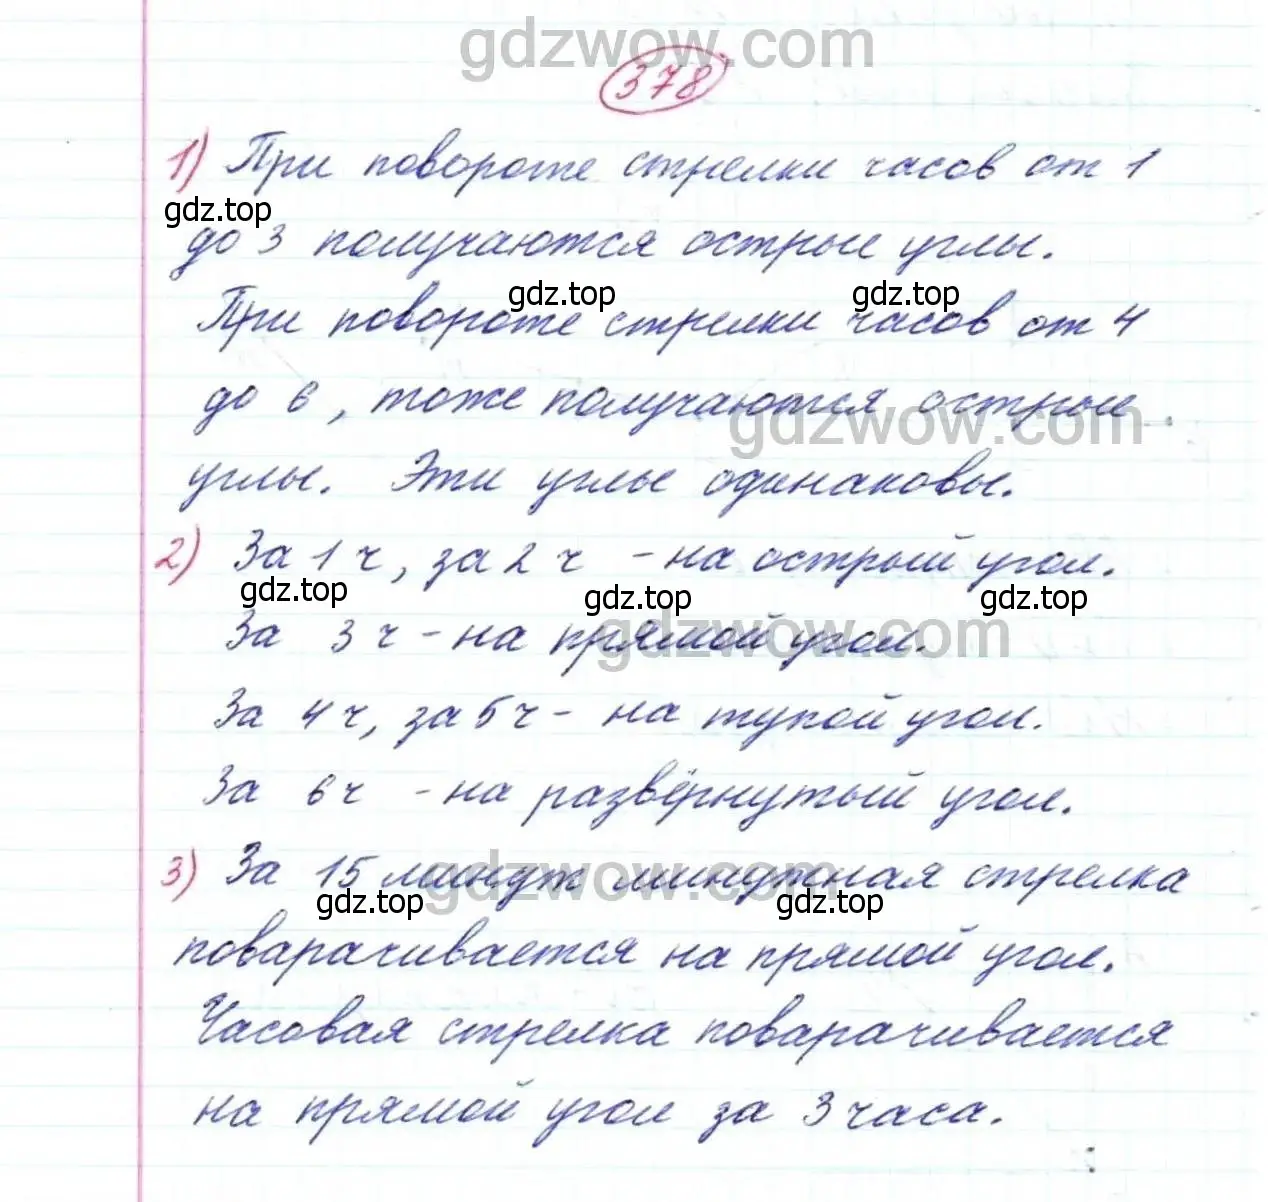 gdzwow.com
378
1) При повороте стрелки часов от 1
gdz.top
до 3 получаются острые углы.
gdz.top gdz.top
При повороте стрелки часов от 4
до 6, тоже получаются острые
gdzwow.com
углы. Эти углы одинаковы.
2) За 1 ч, за 2 ч - на острый угол.
gdz.top gdz.top gdz.top
За 3 ч - на прямой угол.
gdzwow.com
За 4 ч, за 5 ч - на тупой угол.
За 6 ч - на развёрнутый угол.
3) За 15 минут минутная стрелка
gdzwow.com
gdz.top gdz.top
поварачивается на прямой угол.
Часовая стрелка поварачивается
на прямой угол за 3 часа.